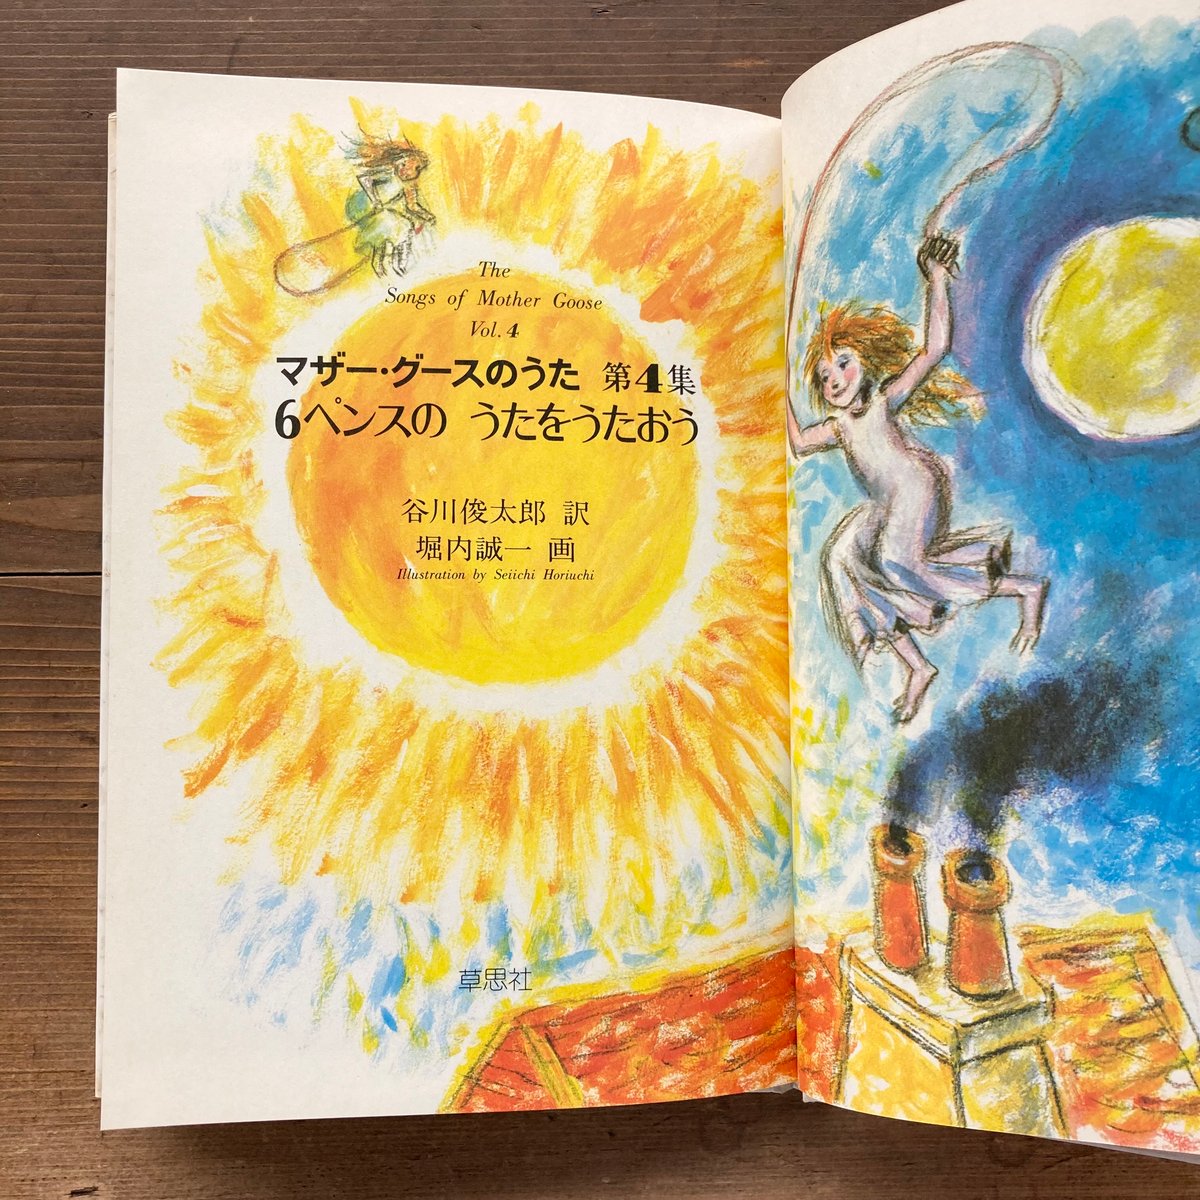 The
Songs of Mother Goose
Vol. 4
マザー・グースのうた 第4集
6ペンスの うたをうたおう
谷川俊太郎 訳
堀内誠一 画
Illustration by Seiichi Horiuchi
草思社